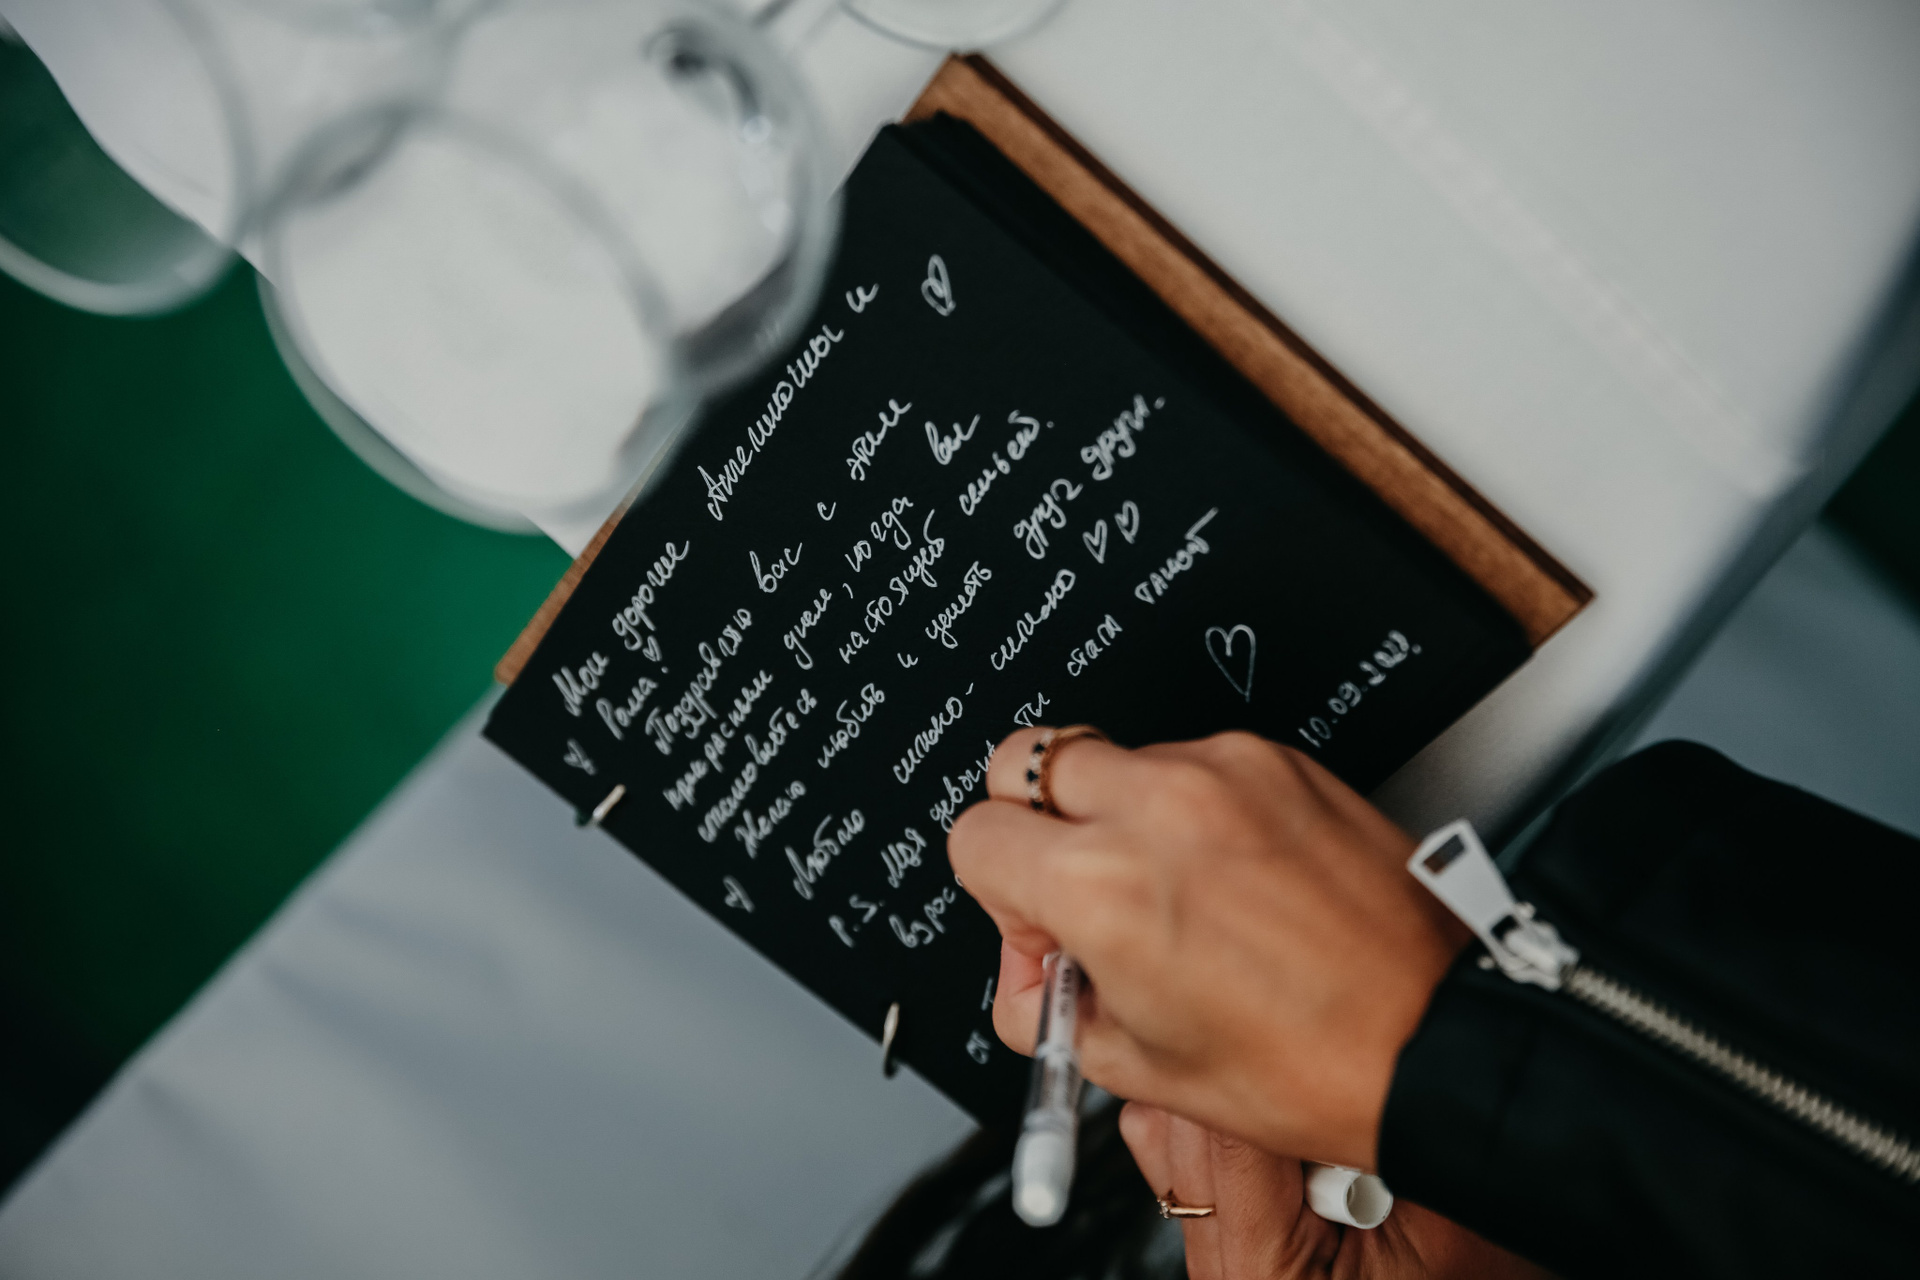 Мои дорогие Ангелиночка и ♡
♡ Рома! ♡
Поздравляю вас с этим
прекрасным днем, когда вы
становитесь настоящей семьей.
Желаю любить и ценить друг друга.
♡ Люблю сильно-сильно ♡♡
P.S. Моя девочка ты стала такой
взрос
от Т
10.09.2022.